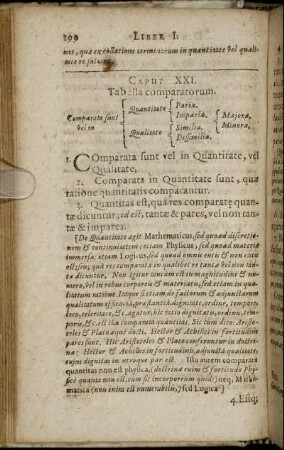 100 LIBER I.
nes, quæ ex collatione terminorum in quantitate vel quali-
tate resultant.
CAPUT XXI.
Tabella comparatorum.
Comparata sunt vel in
Quantitate
Paria.
Imparia.
Qualitate
Similia.
Dissimilia.
Majora,
Minora,
1. Comparata sunt vel in Quantitate, vel
Qualitate.
2. Comparata in Quantitate sunt, quæ
ratione quantitatis comparantur.
3. Quantitas est, qua res comparatę quan-
tæ dicuntur; id est, tantæ & pares, vel non tan-
tæ & impares.
[De Quantitate agit Mathematicus, sed quoad discretio-
nem & continuitatem: etiam Physicus, sed quoad materiæ
immersa: etiam Logicus, sed quoad omni enti & non ente
quod res comparata in qualibet re tanta vel non tan-
ta dicitur. Non igitur tantùm est in magnitudine & nu-
mero, vel in rebus corporeis & materiatis, sed etiam in quali-
tatum
qualitatum
loco, celeritate, &c. agatur, hîc ratio dignitatis, ordinis, tem-
poris, &c. est illa comparatâ quantitas. Sic cùm dico: Aristo-
teles & Plato æquè docti. Hector & Achilles in fortitudine
pares sunt. Hîc Aristoteles & Plato conferuntur in doctri-
na; Hector & Achilles in fortitudine, adjuncta qualitatis
dignitas in utroque par est. Ista autem comparata
quantitas non est physica, (doctrina enim & fortitudo Physi-
cè quanta non est, cum sit incorporeum quid) neq; Mathe-
matica (non enim est numerabilis,) sed Logica]
4. Ejusq;